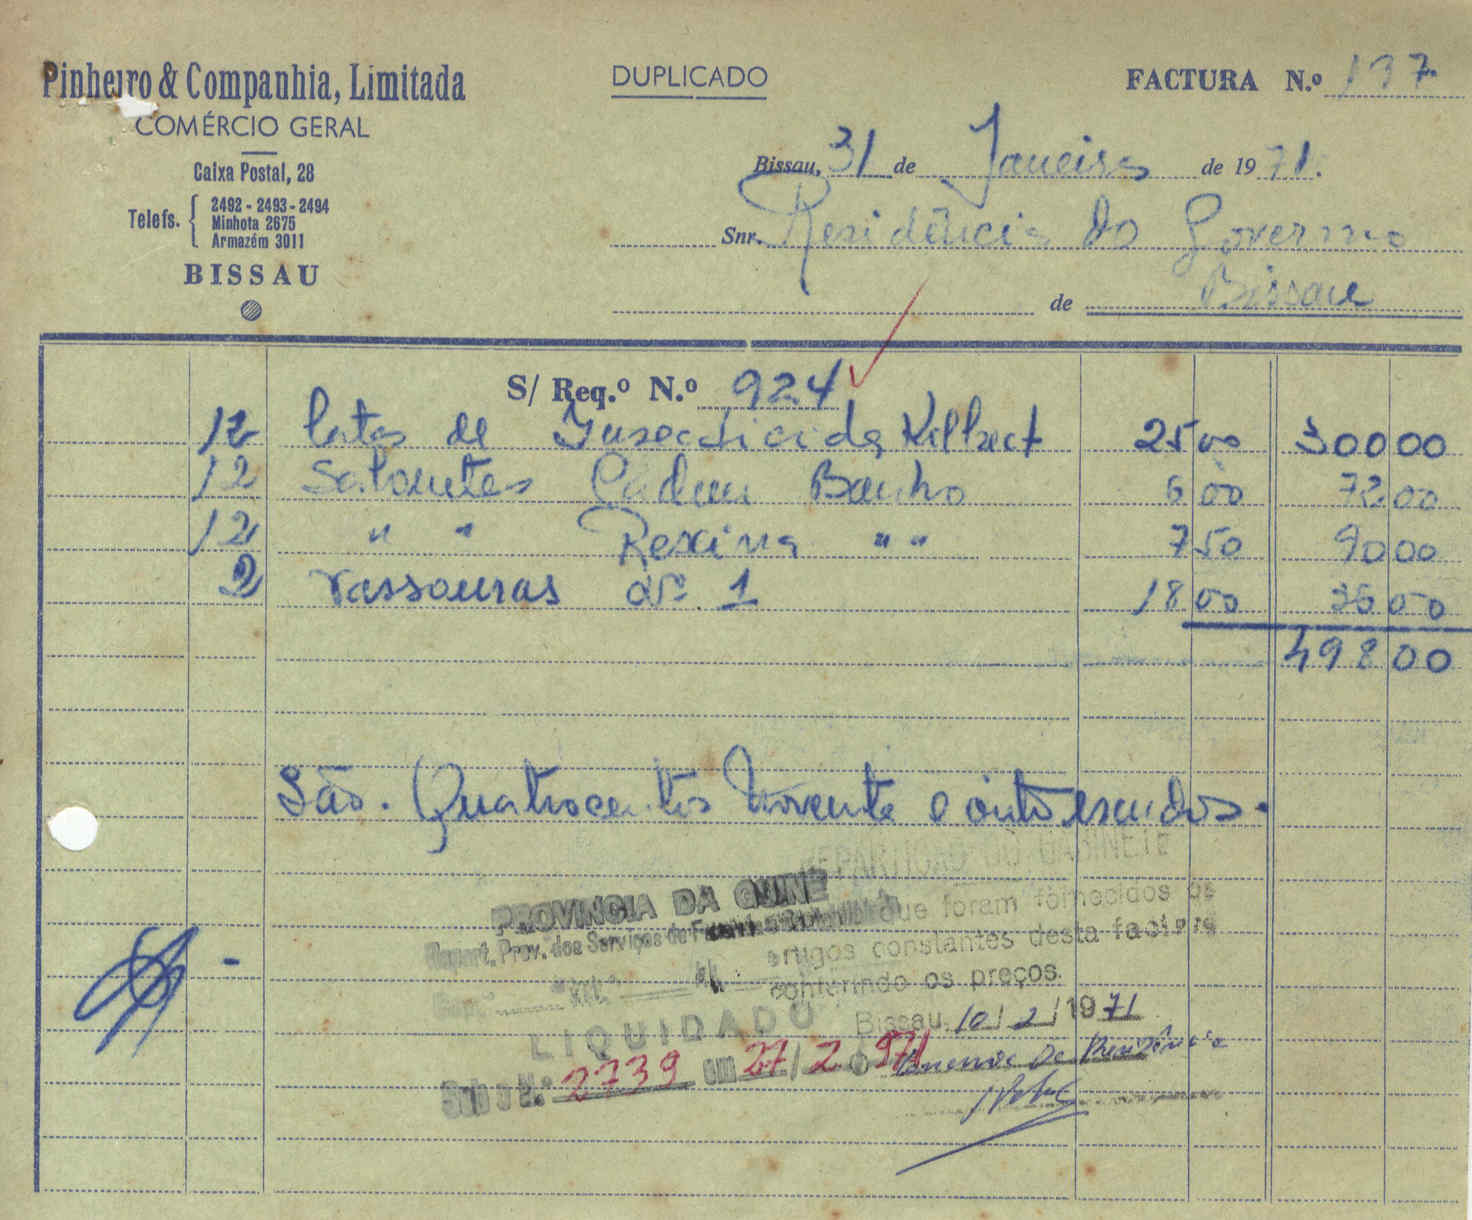 Pinheiro & Companhia, Limitada
COMÉRCIO GERAL
Caixa Postal, 28
Telefs. 2492 - 2493 - 2494
Minhota 2675
Armazém 3011
BISSAU
DUPLICADO
FACTURA N.º 137
Bissau, 31 de Janeiro de 1971.
Snr. Residência do Governo
de Bissau
S/ Req.º N.º 924
12 latas de Insecticida Kilbect 25 00 300 00
12 Sabonetes Cadum Banho 6 00 72 00
12 " " Rexina " " 7 50 90 00
2 Vassouras nº 1 18 00 36 00
498 00
São. Quatrocentos Noventa e oito escudos.
REPARTIÇÃO DO GABINETE
que foram fornecidos os
artigos constantes desta factura
conferindo os preços.
Bissau, 10/2/1971
PROVINCIA DA GUINÉ
Repart. Prov. dos Serviços de
LIQUIDADO
Sob o N.º 2739 em 27/2/971